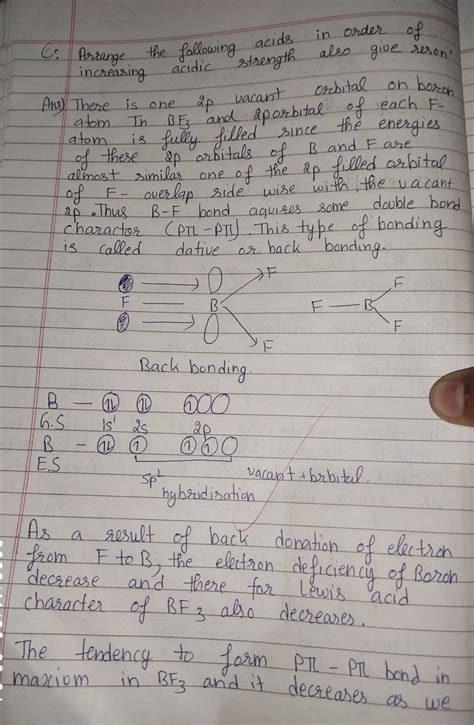 C: Arrange the following acids in order of
increasing acidic strength also give reson'
Ans) There is one 2p vacant orbital on boron
atom In BF3 and 2porbital of each F-
atom is fully filled since the energies
of these 2p orbitals of B and F are
almost similar one of the 2p filled orbital
of F- overlap side wise with the vacant
2p. Thus B-F bond aquires some double bond
charactor (Pπ-Pπ). This type of bonding
is called dative or back bonding.
F B F F
F B F F
Back bonding.
B - ⥮ ⥮ ↿
G.S 1s' 2s 2p
B - ⥮ ↿ ↿ ↿
E.S
vacant orbital.
hybridisation
As a result of back donation of electron
from F to B, the electron deficiency of Boron
decrease and there for Lewis acid
character of BF3 also decreases.
The tendency to form Pπ-Pπ bond in
maxium in BF3 and it decreases as we